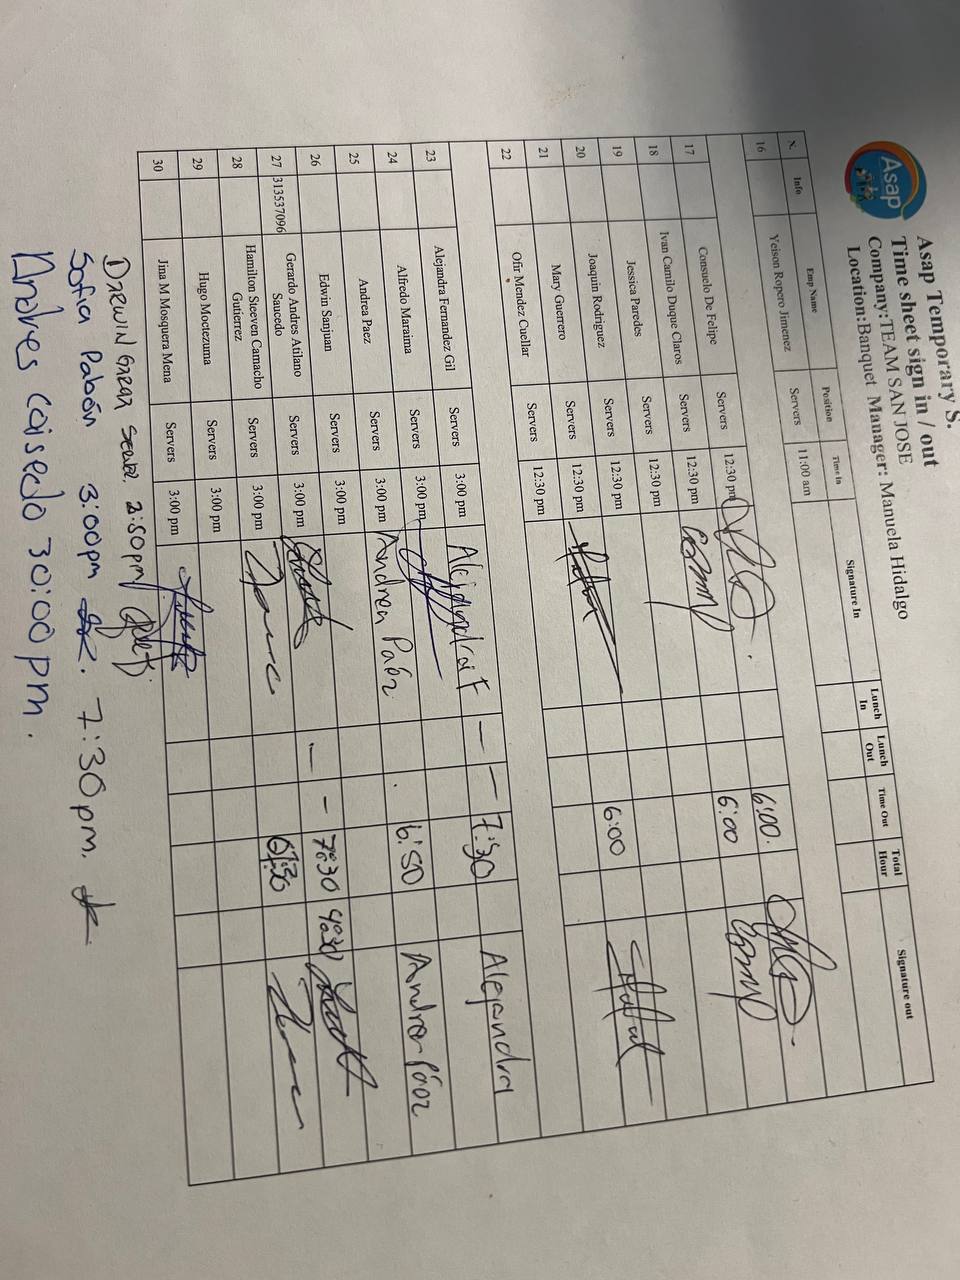 Asap
Asap Temporary S.
Time sheet sign in / out
Company:TEAM SAN JOSE
Location:Banquet Manager: Manuela Hidalgo
N. Info Emp Name Position Time In Signature In Lunch In Lunch Out Time Out Total Hour Signature out
16 Yeison Ropero Jimenez Servers 11:00 am
17 Consuelo De Felipe Servers 12:30 pm 6:00.
18 Ivan Camilo Duque Claros Servers 12:30 pm 6:00
19 Jessica Paredes Servers 12:30 pm
20 Joaquin Rodriguez Servers 12:30 pm
21 Mary Guerrero Servers 12:30 pm 6:00
22 Ofir Mendez Cuellar Servers 12:30 pm
23 Alejandra Fernandez Gil Servers 3:00 pm Alejandra F — — 7:30 Alejandra
24 Alfredo Maraima Servers 3:00 pm
25 Andrea Paez Servers 3:00 pm Andrea Paéz 6:50 Andrea Páez
26 Edwin Sanjuan Servers 3:00 pm
27 313537096 Gerardo Andres Atilano Saucedo Servers 3:00 pm — - 7:30 4:30
28 Hamilton Steeven Camacho Gutierrez Servers 3:00 pm 07:30
29 Hugo Moctezuma Servers 3:00 pm
30 Jina M Mosquera Mena Servers 3:00 pm
Sofia Pabón 3:00pm 7:30pm.
Andres Caisedo 30:00 pm.